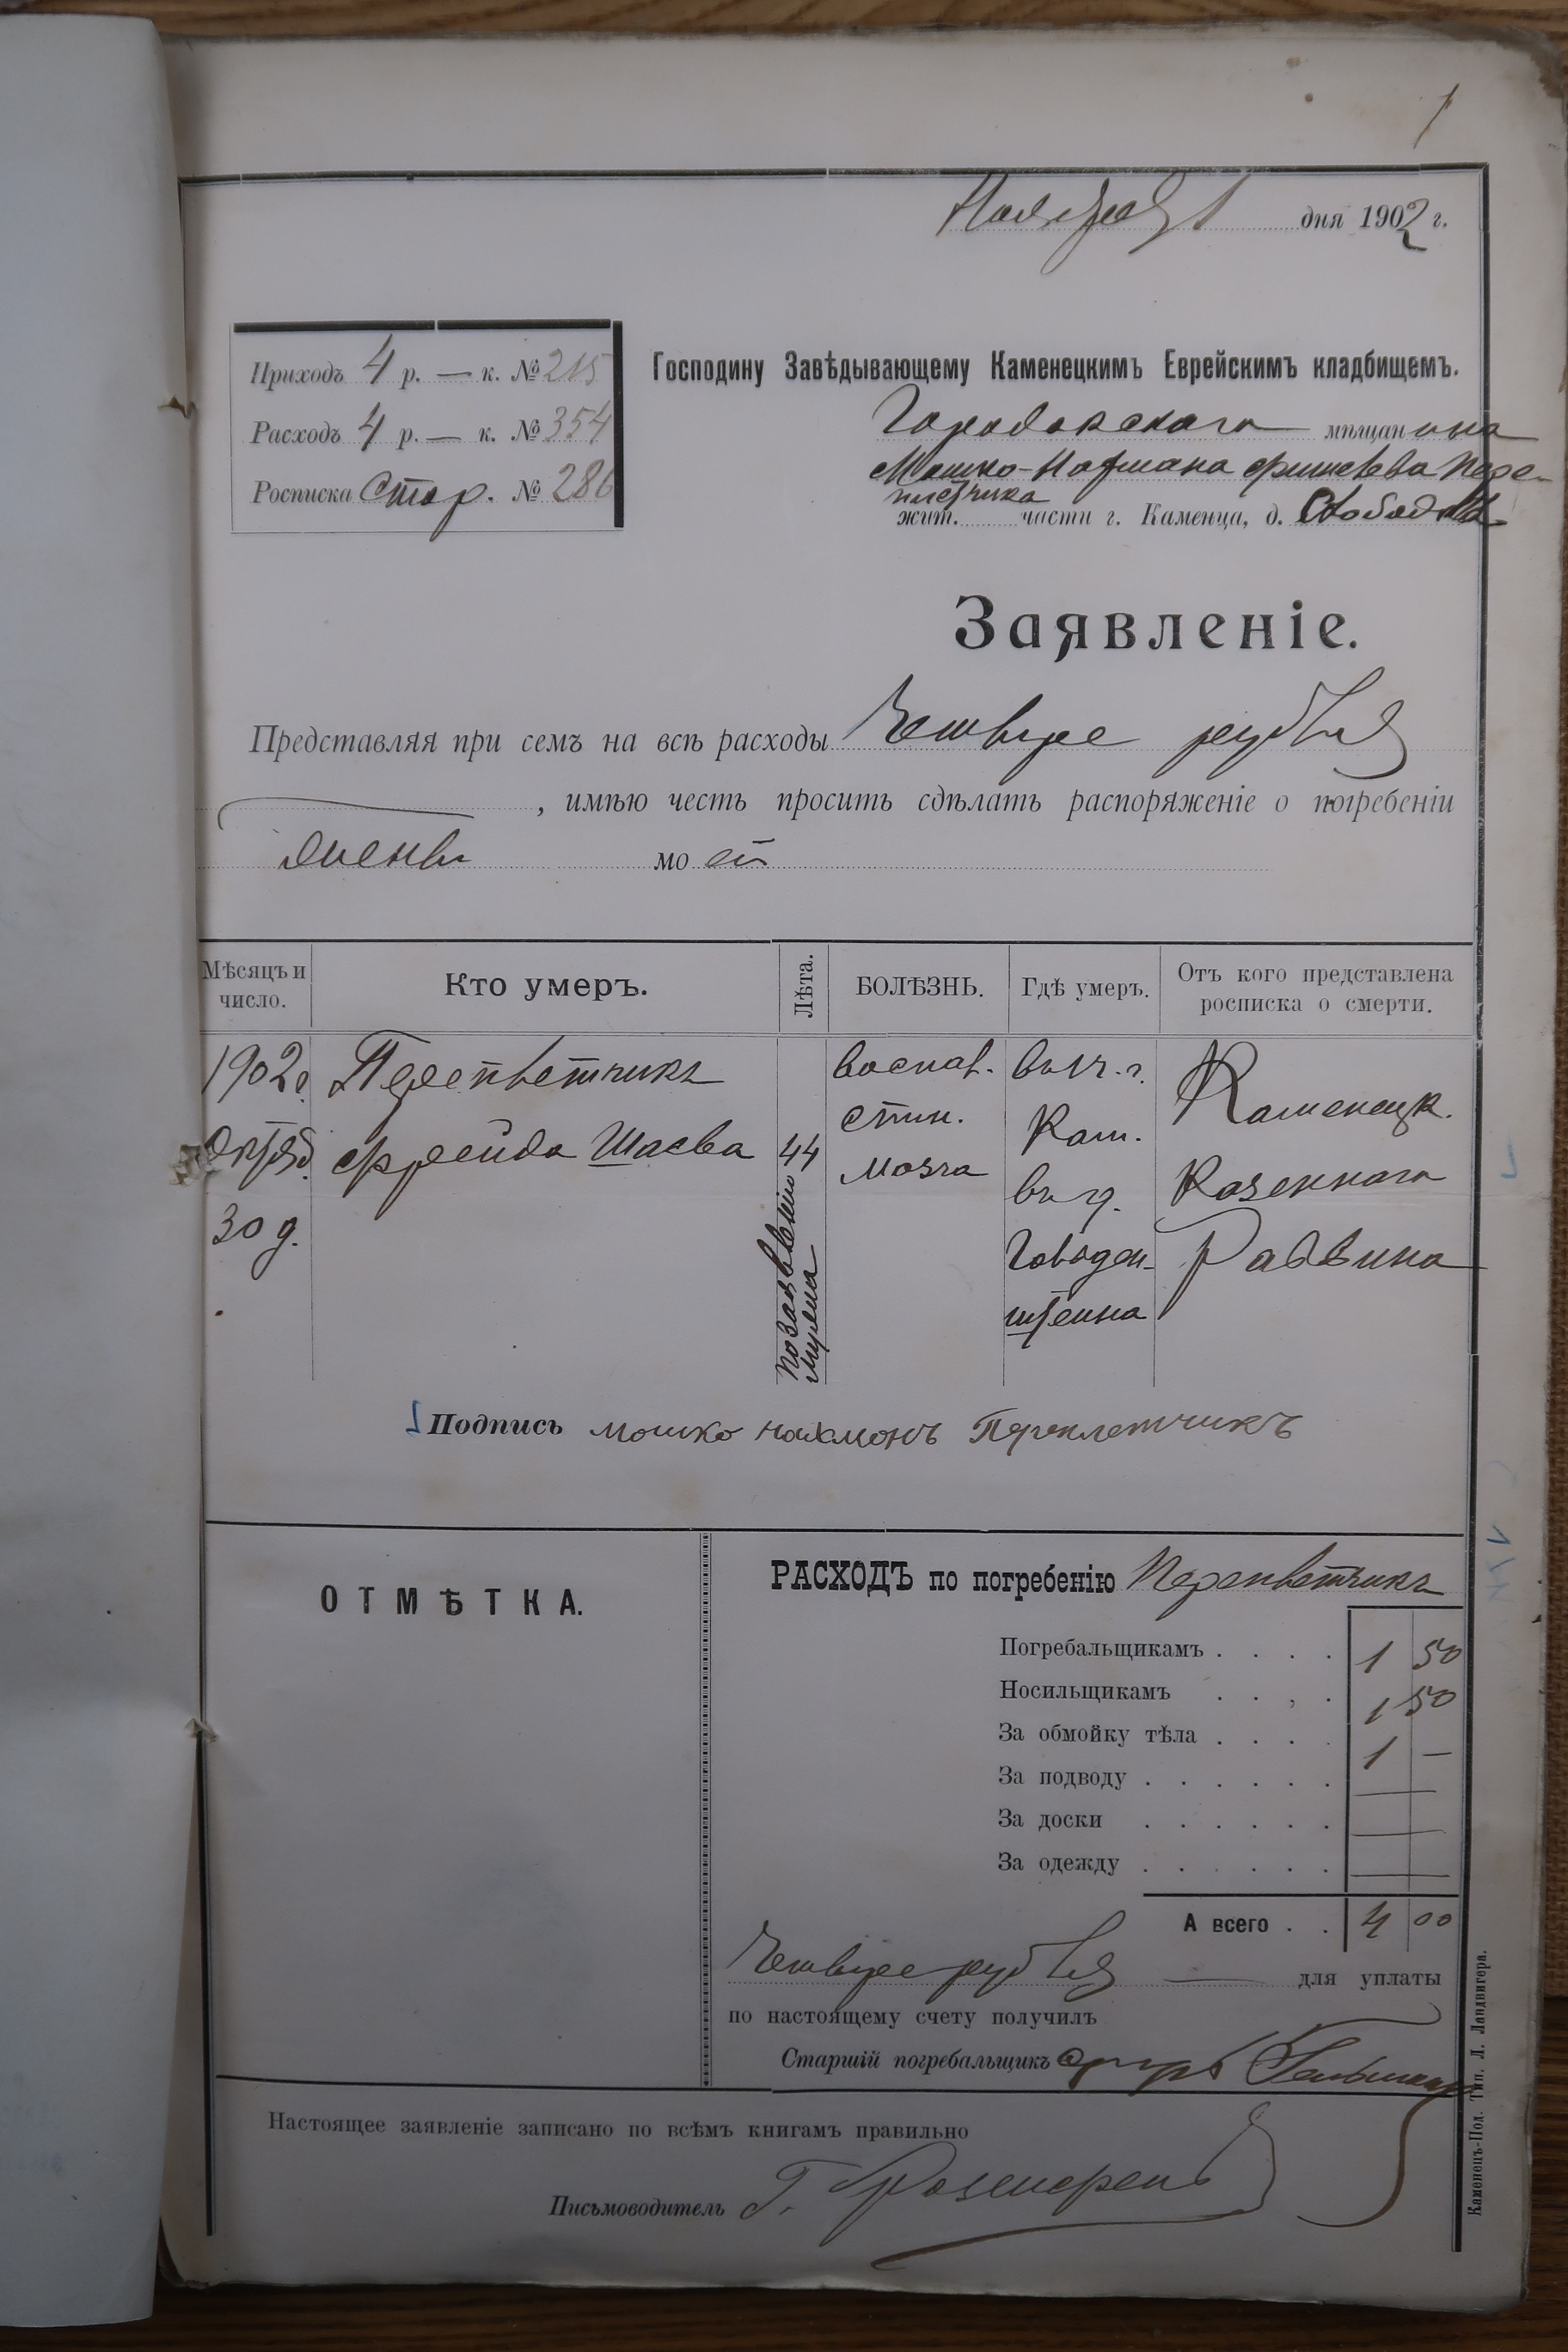 1
Ноября 1 дня 1902 г.
Приходъ 4 р. — к. № 215
Расходъ 4 р. — к. № 354
Росписка Стор. № 286
Господину Завѣдывающему Каменецкимъ Еврейскимъ кладбищемъ.
Городокского мѣщанина
Мошко-Нахмана Фишелева Пере-
плетчика
жит. части г. Каменца, д.
Заявленіе.
Представляя при семъ на всѣ расходы Четыре рубля
, имѣю честь просить сдѣлать распоряженіе о погребеніи
жены моей
Мѣсяцъ и число. Кто умеръ. Лѣта. БОЛѢЗНЬ. Гдѣ умеръ. Отъ кого представлена росписка о смерти.
1902 г. Переплетчикъ воспал. въ 1 ч. г. Каменецк.
Октяб. Фрейда Шаева 44 спин. Кам. Казеннаго
30 д. мозга въ д. Раввина
Гольден-
штейна
по заявлению
мужа
Подпись мошко нахмонъ Переплетчикъ
ОТМѢТКА.
РАСХОДЪ по погребенію Переплетчикъ
Погребальщикамъ . . . . 1 50
Носильщикамъ . . , . 1 50
За обмойку тѣла . . . . 1 —
За подводу . . . . . . —
За доски . . . . . . —
За одежду . . . . . . —
А всего . . 4 00
Четыре рубля — для уплаты
по настоящему счету получилъ
Старшій погребальщикъ
Настоящее заявленіе записано по всѣмъ книгамъ правильно
Письмоводитель Г.
Каменецъ-Под. Тип. Л. Ландвигера.